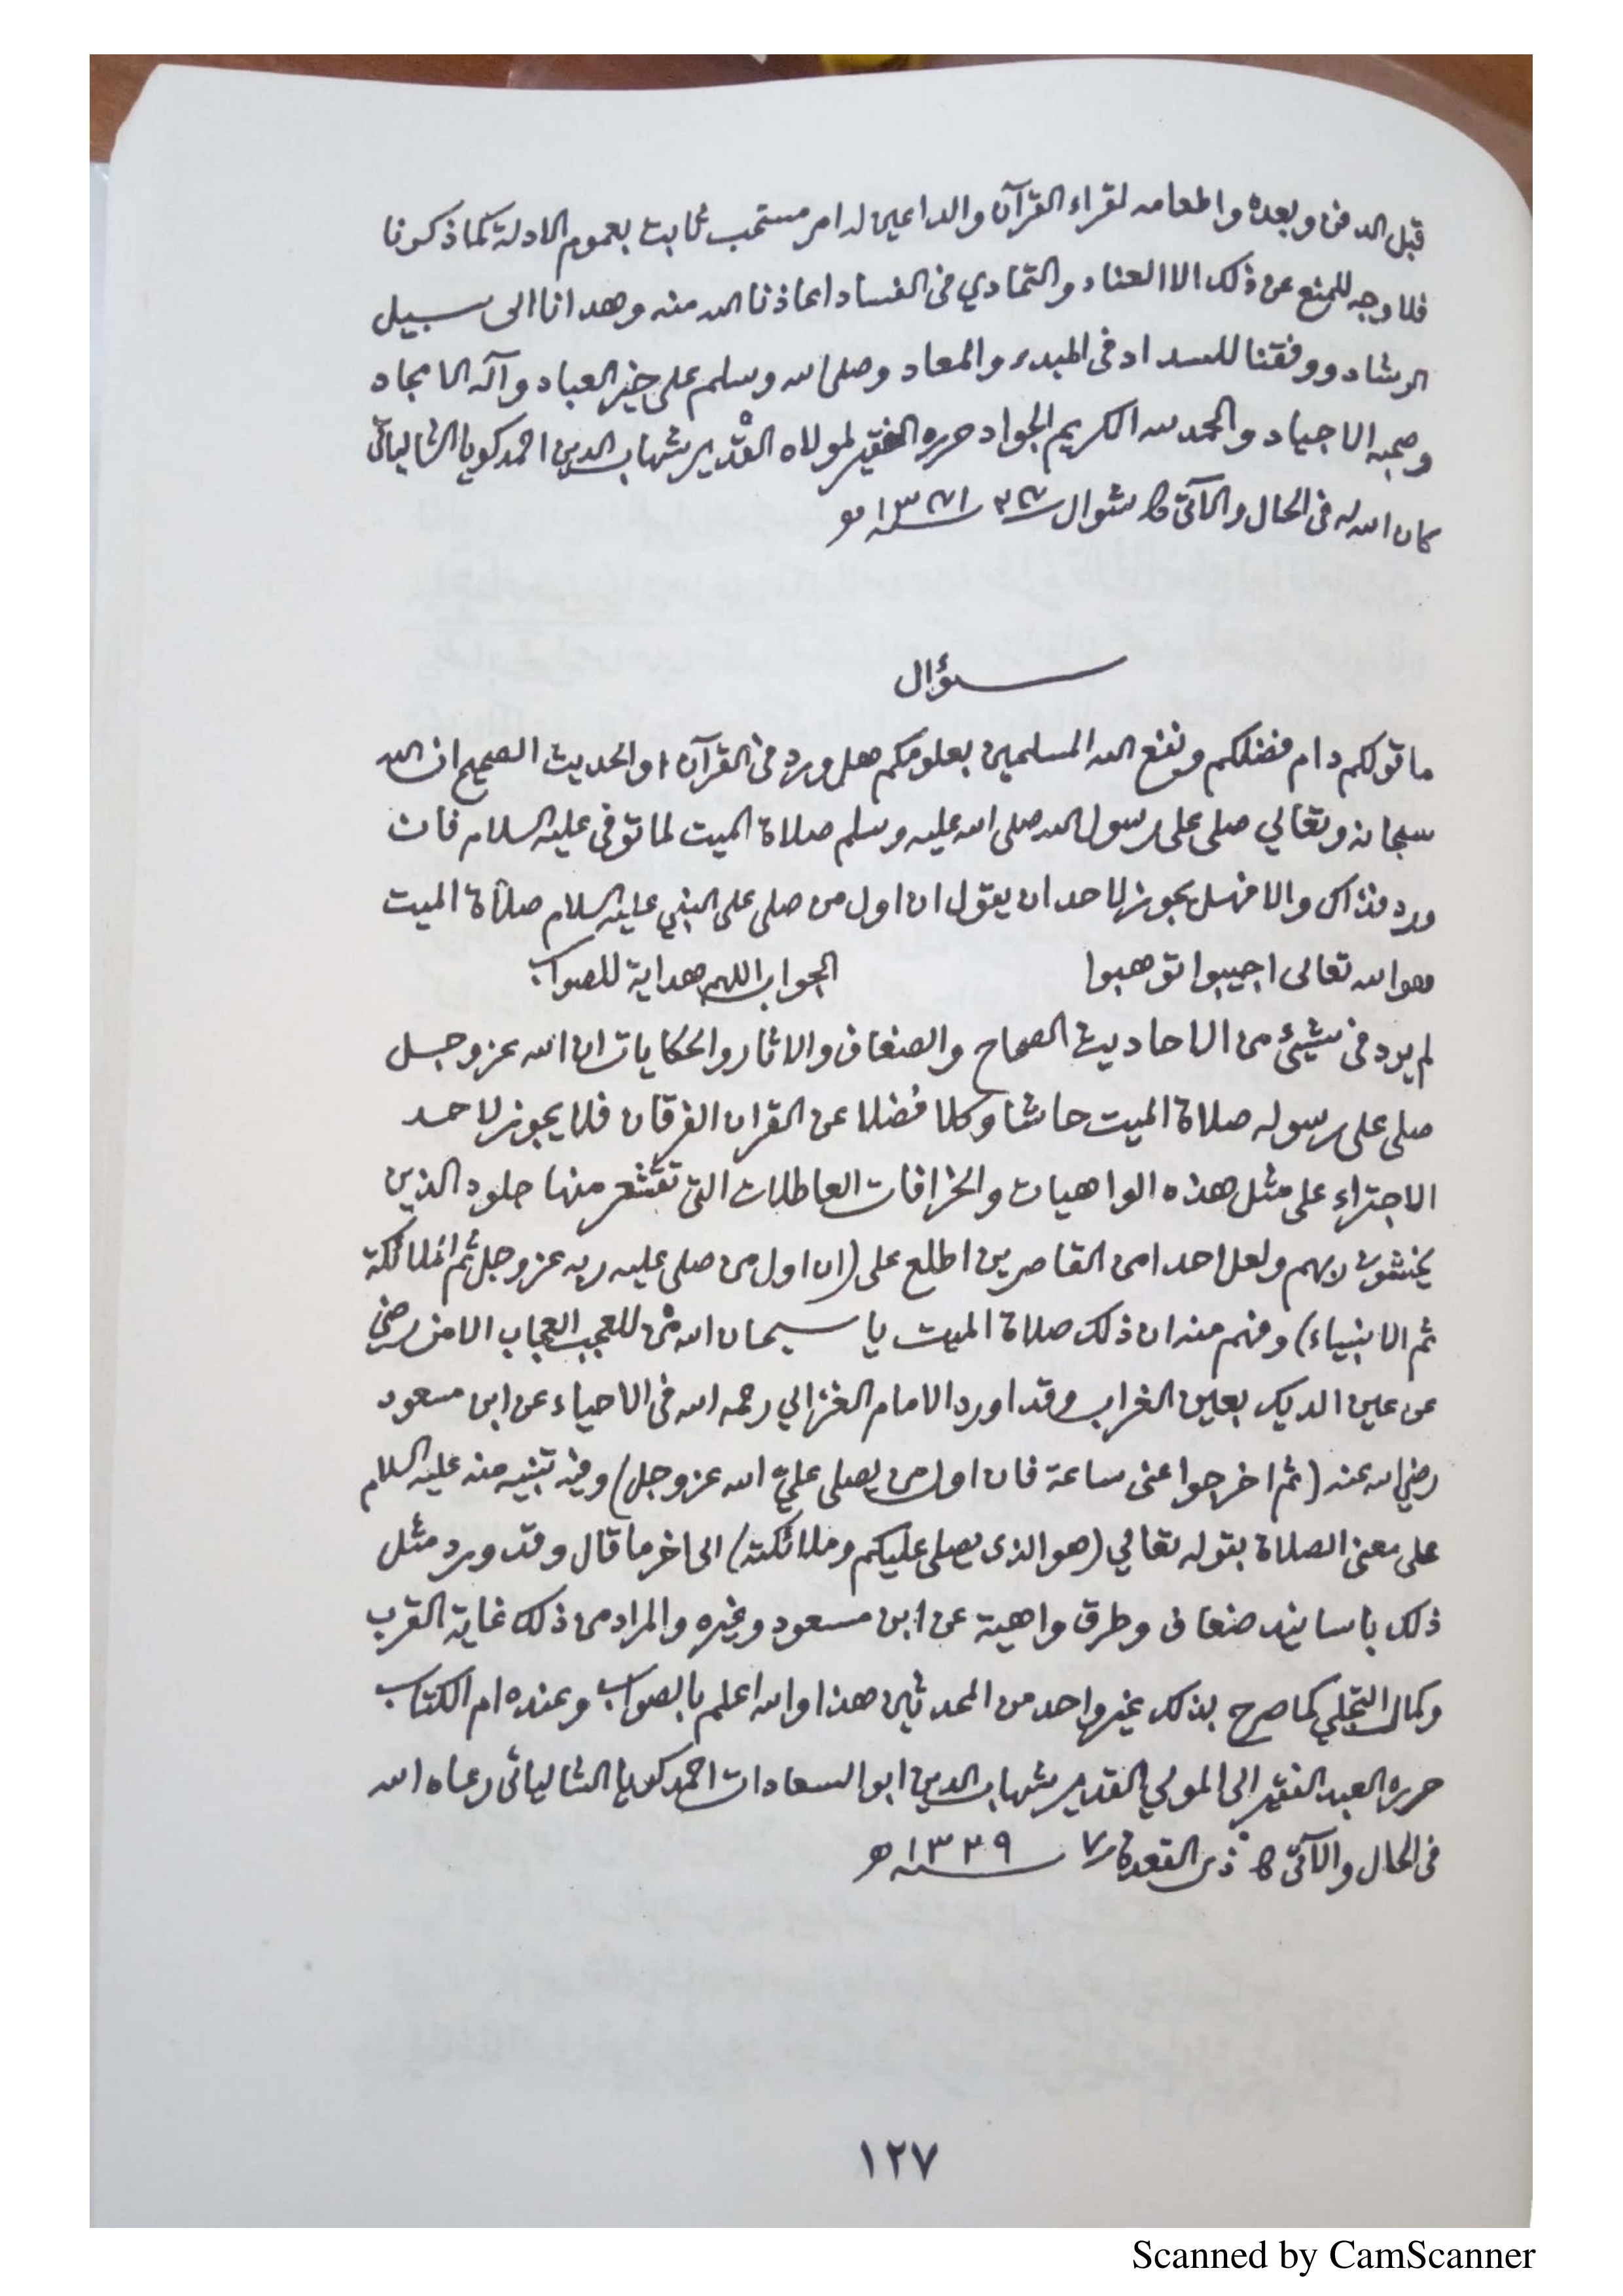 قبل الدفن وبعده واطعامه لقراء القرآن والداعين له امر مستحب ثابت بعموم الادلة كما ذكرنا
فلا وجه للمنع عن ذلك الا العناد والتمادي في الفساد اعاذنا الله منه وهدانا الى سبيل
الرشاد ووفقنا للسداد في المبدء والمعاد وصلى الله وسلم على خير العباد وآله الامجاد
وصحبه الاجياد والحمد لله الكريم الجواد حرره الفقير لمولاه القدير شهاب الدين احمد كويا الشالياتي
كان الله له في الحال والآتي شوال
سؤال
ما قولكم دام فضلكم ونفع الله المسلمين بعلومكم هل ورد في القرآن او الحديث الصحيح ان الله
سبحانه وتعالي صلى على رسول الله صلى الله عليه وسلم صلاة الميت لما توفى عليه السلام فان
ورد فذاك والا فهل يجوز لاحد ان يقول ان اول من صلى على النبي عليه السلام صلاة الميت
هو الله تعالى اجيبوا توهبوا الجواب اللهم هداية للصواب
لم يرد في شيئ من الاحاديث الصحاح والضعاف والاثار والحكايات ان الله عز وجل
صلى على رسوله صلاة الميت حاشا وكلا فضلا عن القران الفرقان فلا يجوز لاحد
الاجتراء على مثل هذه الواهيات والخرافات العاطلات التي تقشعر منها جلود الذين
يخشون ربهم ولعل احدا من القاصرين اطلع على (ان اول من صلى عليه ربه عز وجل ثم الملائكة
ثم الانبياء) وفهم منه ان ذلك صلاة الميت يا سبحان الله من للعجب العجاب الا من رضي
عن عين الديك بعين الغراب وقد اورد الامام الغزالي رحمه الله في الاحياء عن ابن مسعود
رضي الله عنه (ثم اخرجوا عنى ساعة فان اول من يصلى عليّ الله عز وجل) وفيه تنبيه منه عليه السلام
على معنى الصلاة بقوله تعالي (هو الذى يصلى عليكم وملائكته) الى اخر ما قال وقد ورد مثل
ذلك باسانيد ضعاف وطرق واهية عن ابن مسعود وغيره والمراد من ذلك غاية القرب
وكمال التجلي كما صرح بذلك غير واحد من المحدثين هذا والله اعلم بالصواب وعنده ام الكتاب
حرره العبد الفقير الى المولي القدير شهاب الدين ابو السعادات احمد كويا الشالياتي رعاه الله
في الحال والآتي ذى القعدة ٧ ١٣٣٩ هـ
١٢٧
Scanned by CamScanner